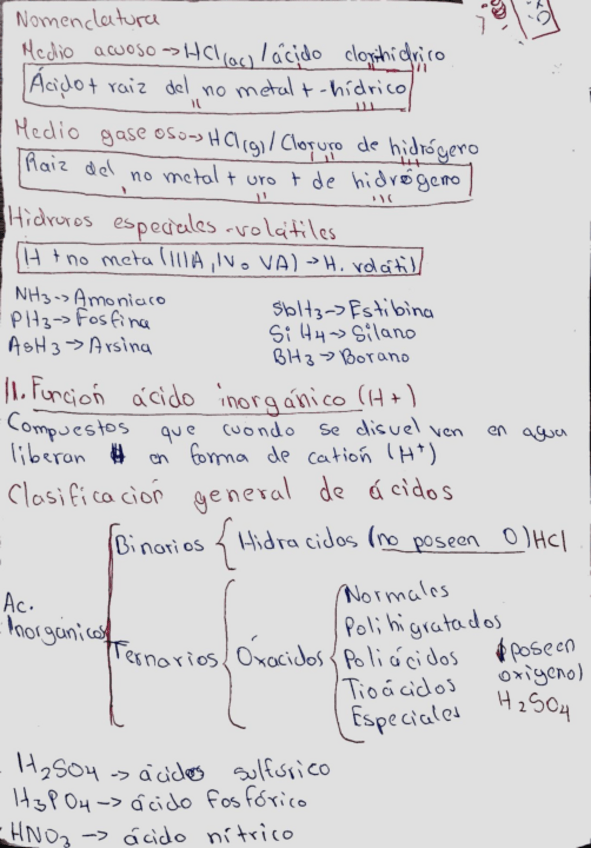 Nomenclatura
Medio acuoso → HCl(ac) / ácido clorhídrico
Ácido + raiz del no metal + -hídrico
Medio gaseoso → HCl(g) / Cloruro de hidrógeno
Raiz del no metal + uro + de hidrógeno
Hidruros especiales - volátiles
H + no meta (IIIA, IV o VA) → H. volátil
NH3 → Amoniaco
PH3 → Fosfina
AsH3 → Arsina
SbH3 → Estibina
SiH4 → Silano
BH3 → Borano
II. Función ácido inorgánico (H+)
Compuestos que cuando se disuelven en agua
liberan H en forma de catión (H+)
Clasificación general de ácidos
Ac. Inorgánicos
Binarios { Hidracidos (no poseen O) HCl
Ternarios { Óxacidos
Normales
Polihigratados
Poliácidos
Tioácidos
Especiales
(poseen
oxígeno)
H2SO4
H2SO4 → ácido sulfúrico
H3PO4 → ácido fosfórico
HNO3 → ácido nítrico